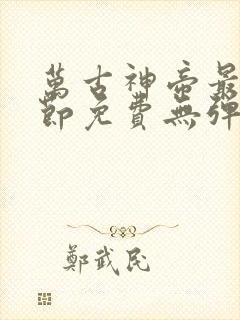 萬古神帝最
節免費無彈
鄭武民